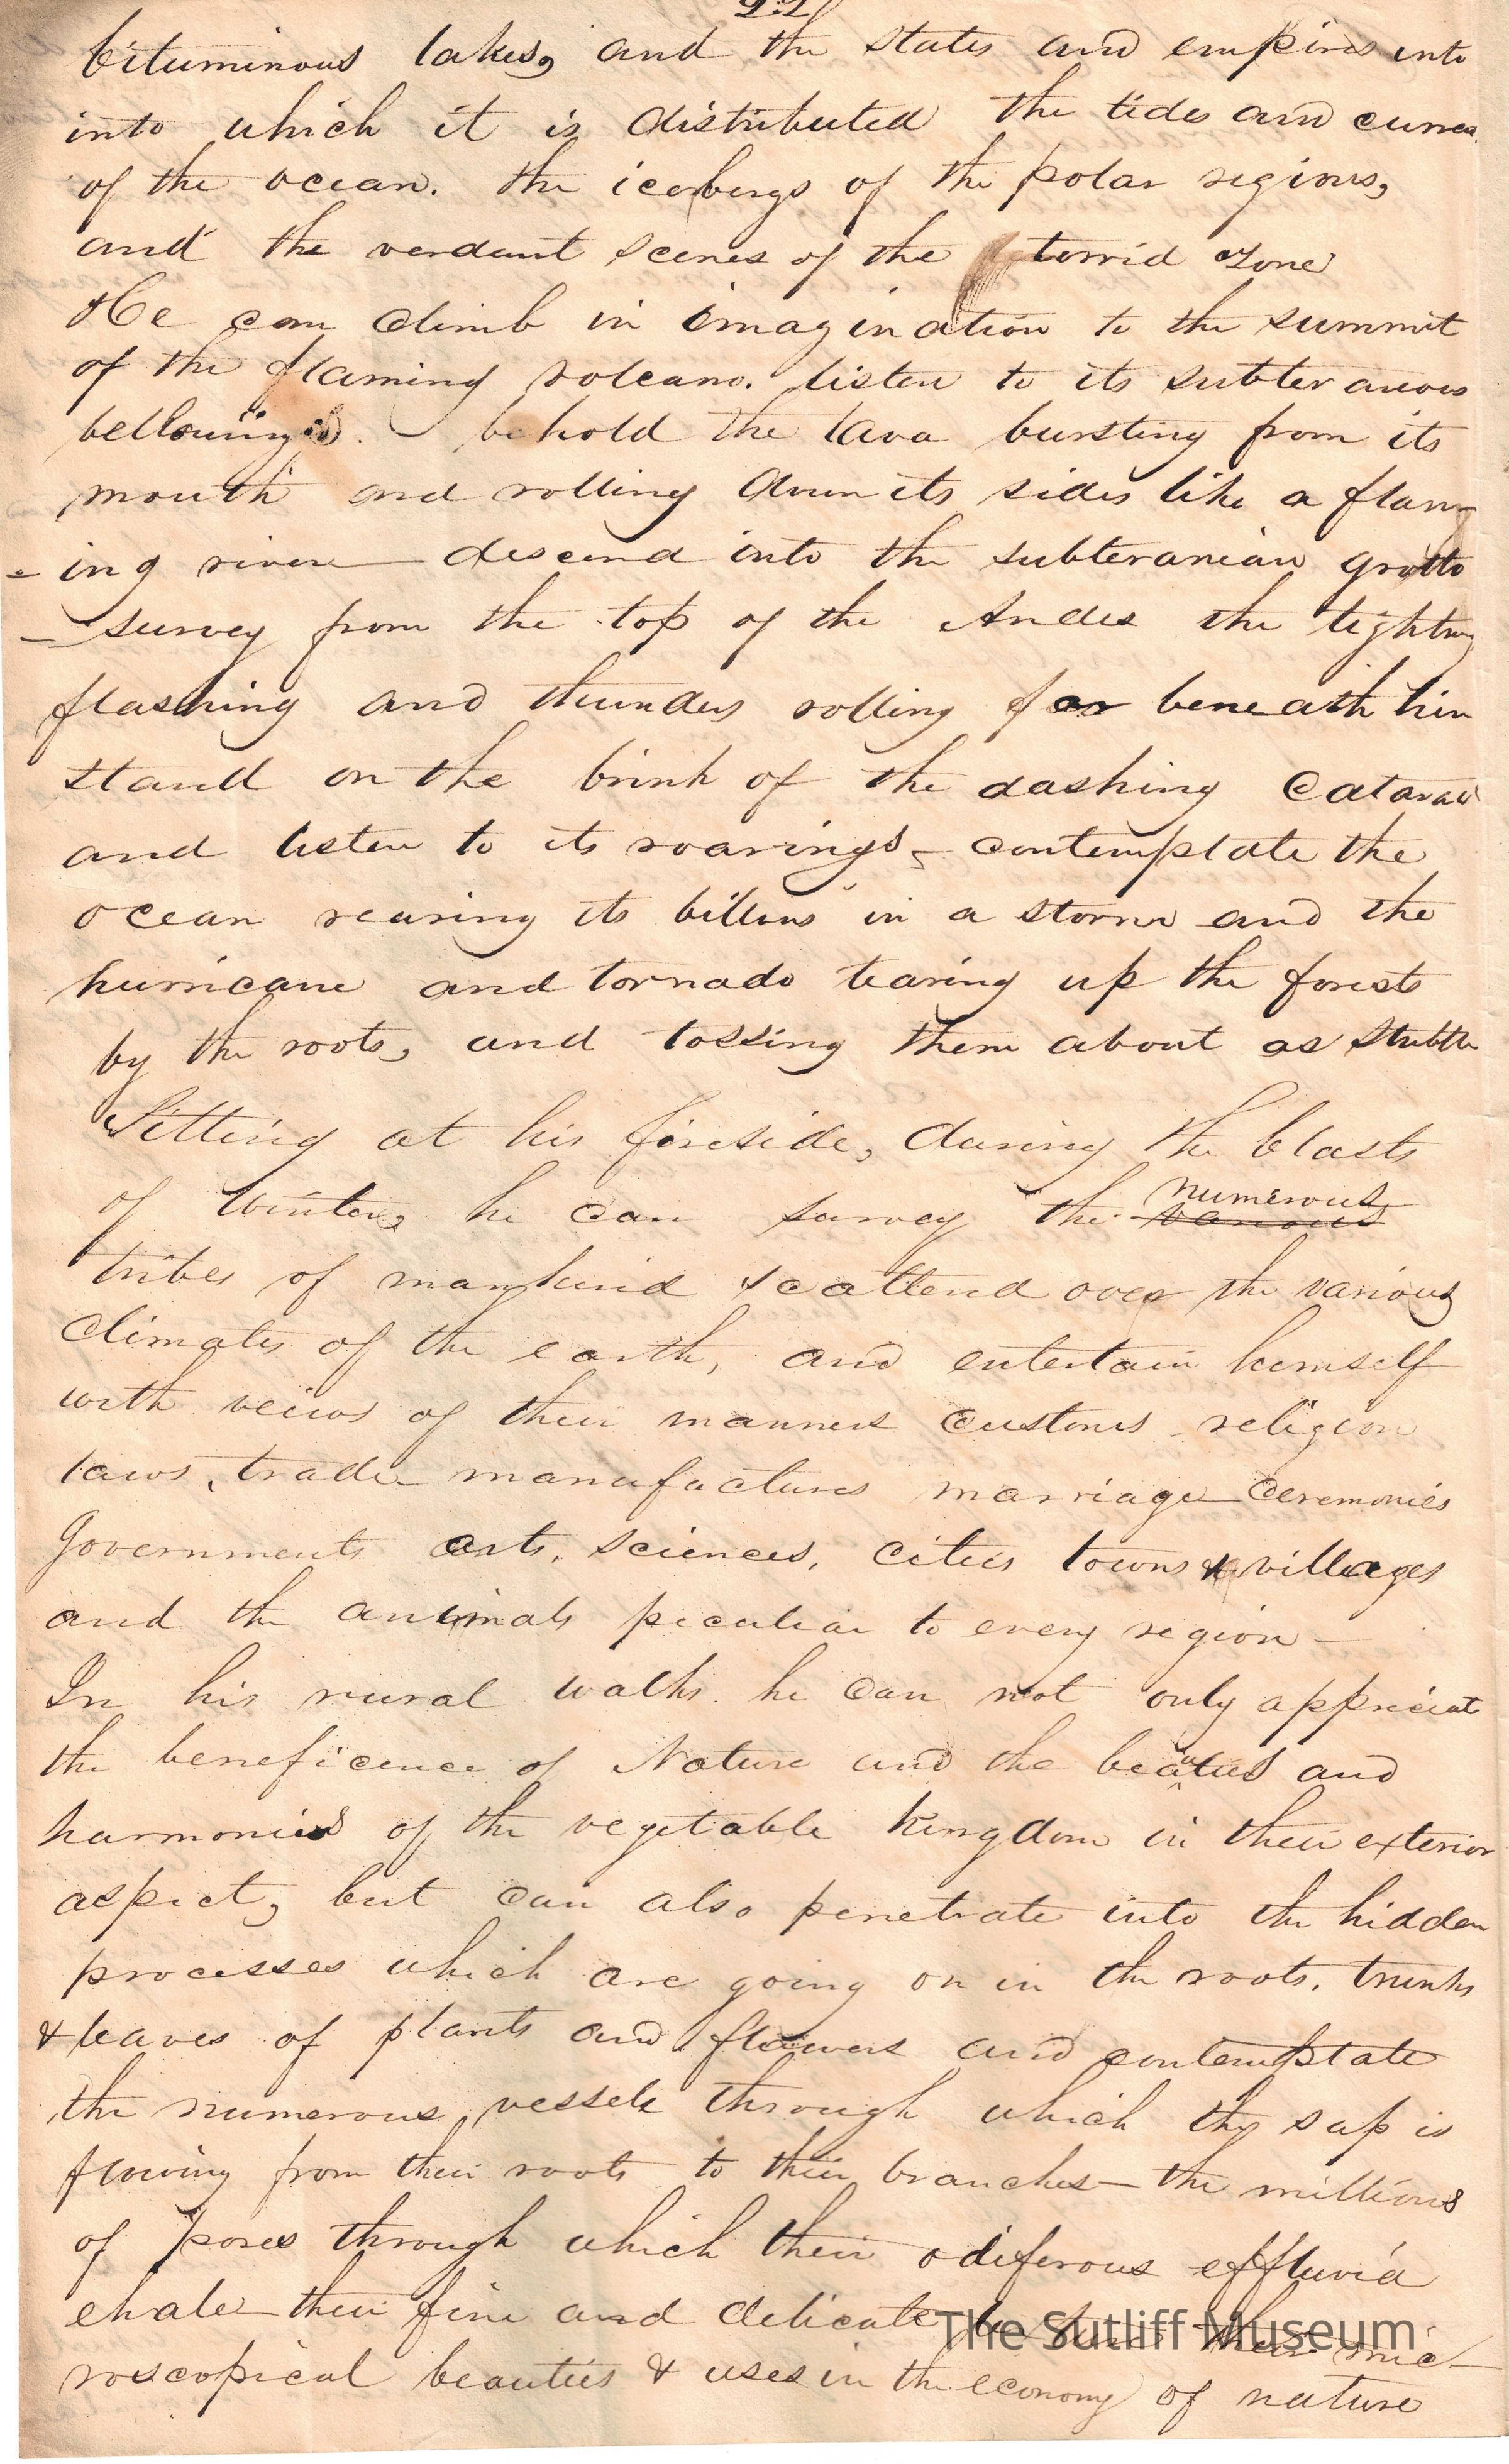 22
bituminous lakes, and the states and empires into
into which it is distributed the tides and
of the ocean. the icebergs of the polar regions,
and the verdant scenes of the torrid zone
He can climb in imagination to the summit
of the flaming volcano. listen to its subteraneous
bellowings. behold the lava bursting from its
mouth and rolling down its sides like a flam-
-ing river descend into the subteranian grotto
- survey from the top of the Andes the lightning
flashing and thunders rolling far beneath him
stand on the brink of the dashing Cataract
and listen to its roarings - contemplate the
ocean rearing its billows in a storm and the
hurricane and tornado tearing up the forests
by the roots, and tossing them about as stubble
Sitting at his fireside, during the blasts
of winter, he can survey the various numerous
tribes of mankind scattered over the various
climates of the earth, and entertain himself
with veiws of their manners customs religion
laws, trade manufactures marriage ceremonies
Governments arts, sciences, cities towns & villages
and the animals peculiar to every region -
In his rural walks he can not only appreciate
the beneficence of Nature and the beauties and
harmonies of the vegetable kingdom in their exterior
aspect, but can also penetrate into the hidden
processes which are going on in the roots, trunks
& leaves of plants and flowers and contemplate
the numerous vessels through which the sap is
flowing from their roots to their branches - the millions
of pores through which their odiferous effluvia
exhale their fine and delicate their mic-
roscopical beauties & uses in the economy of nature
The Sutliff Museum